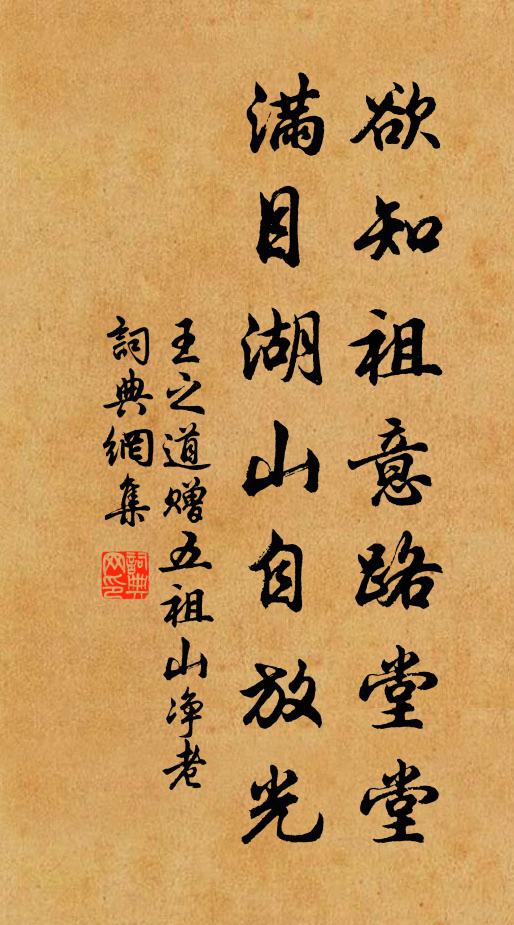 欲知祖意路堂堂
满目湖山自放光
王之道赠五祖山净老
詞典網集
詞典
网印